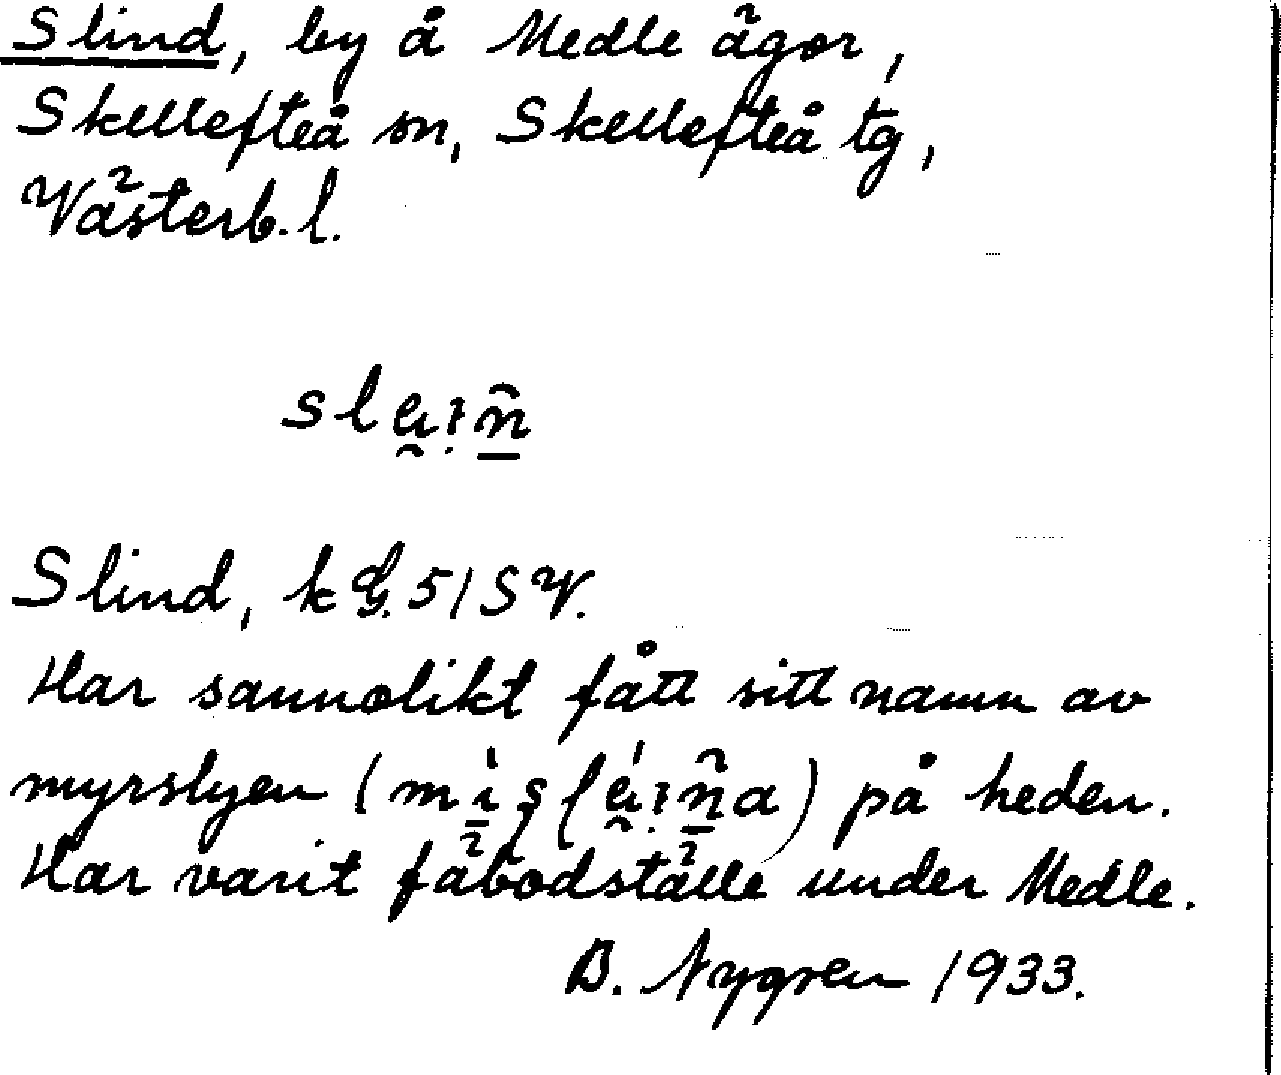 Slind, by å Medle ägor,
Skellefteå sn, Skellefteå tg,
Västerb. l.
Slind, k G. 51 SV.
Har sannolikt fått sitt namn av
myrslyen på heden.
Har varit fäbodställe under Medle.
B. Nygren 1933.